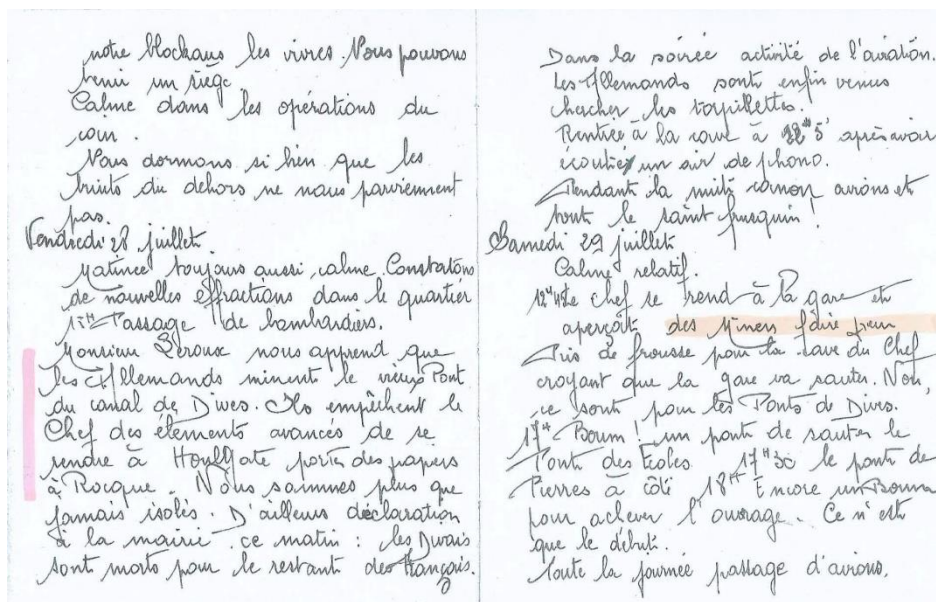 notre blockaus les vivres. Nous pouvons
tenir un siège
Calme dans les opérations du
coin.
Nous dormons si bien que les
bruits du dehors ne nous parviennent
pas.
Vendredi 28 juillet
Matinée toujours aussi calme. Constatons
de nouvelles effractions dans le quartier
17H Passage de bombardiers.
Monsieur Leroux nous apprend que
les Allemands minent le vieux Pont
du canal de Dives. Ils empêchent le
Chef des éléments avancés de se
rendre à Houlgate porter des papiers
à Rocque. Nous sommes plus que
jamais isolés. D'ailleurs déclaration
à la mairie ce matin : les Divais
sont morts pour le restant des Français.
Dans la soirée activité de l'aviation.
Les Allemands sont enfin venus
chercher les torpillettes.
Rentrée à la cave à 22H5' après avoir
écouté un air de phono.
Pendant la nuit canon avions et
tout le saint frusquin !
Samedi 29 juillet
Calme relatif.
Le chef se rend à la gare et
aperçoit des Miners
Pris de frousse pour la cave du Chef
croyant que la gare va sauter. Non,
ce sont pour les Ponts de Dives.
17H Boum ! un pont de sauter le
Pont des Ecoles. 17H30 le pont de
Pierres à côté, 18H Encore un Boum
pour achever l'ouvrage. Ce n'est
que le début.
Toute la journée passage d'avions.